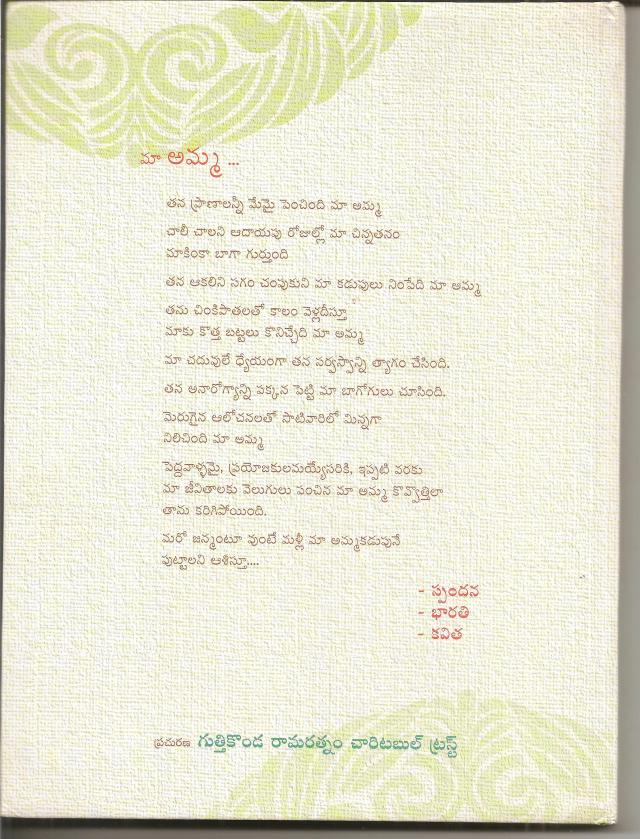 మా అమ్మ ...
తన ప్రాణాలన్నీ మేమై పెంచింది మా అమ్మ
చాలీ చాలని ఆదాయపు రోజుల్లో మా చిన్నతనం
మాకింకా బాగా గుర్తుంది
తన ఆకలిని సగం చంపుకుని మా కడుపులు నింపేది మా అమ్మ
తను చింకిపాతలతో కాలం వెళ్లదీస్తూ
మాకు కొత్త బట్టలు కొనిచ్చేది మా అమ్మ
మా చదువులే ధ్యేయంగా తన సర్వస్వాన్ని త్యాగం చేసింది.
తన అనారోగ్యాన్ని పక్కన పెట్టి మా బాగోగులు చూసింది.
మెరుగైన ఆలోచనలతో సాటివారిలో మిన్నగా
నిలిచింది మా అమ్మ
పెద్దవాళ్ళమై, ప్రయోజకులమయ్యేసరికి, ఇప్పటి వరకు
మా జీవితాలకు వెలుగులు పంచిన మా అమ్మ కొవ్వొత్తిలా
తాను కరిగిపోయింది.
మరో జన్మంటూ వుంటే మళ్లీ మా అమ్మకడుపునే
పుట్టాలని ఆశిస్తూ....
- స్పందన
- భారతి
- కవిత
ప్రచురణ గుత్తికొండ రామరత్నం చారిటబుల్ ట్రస్ట్